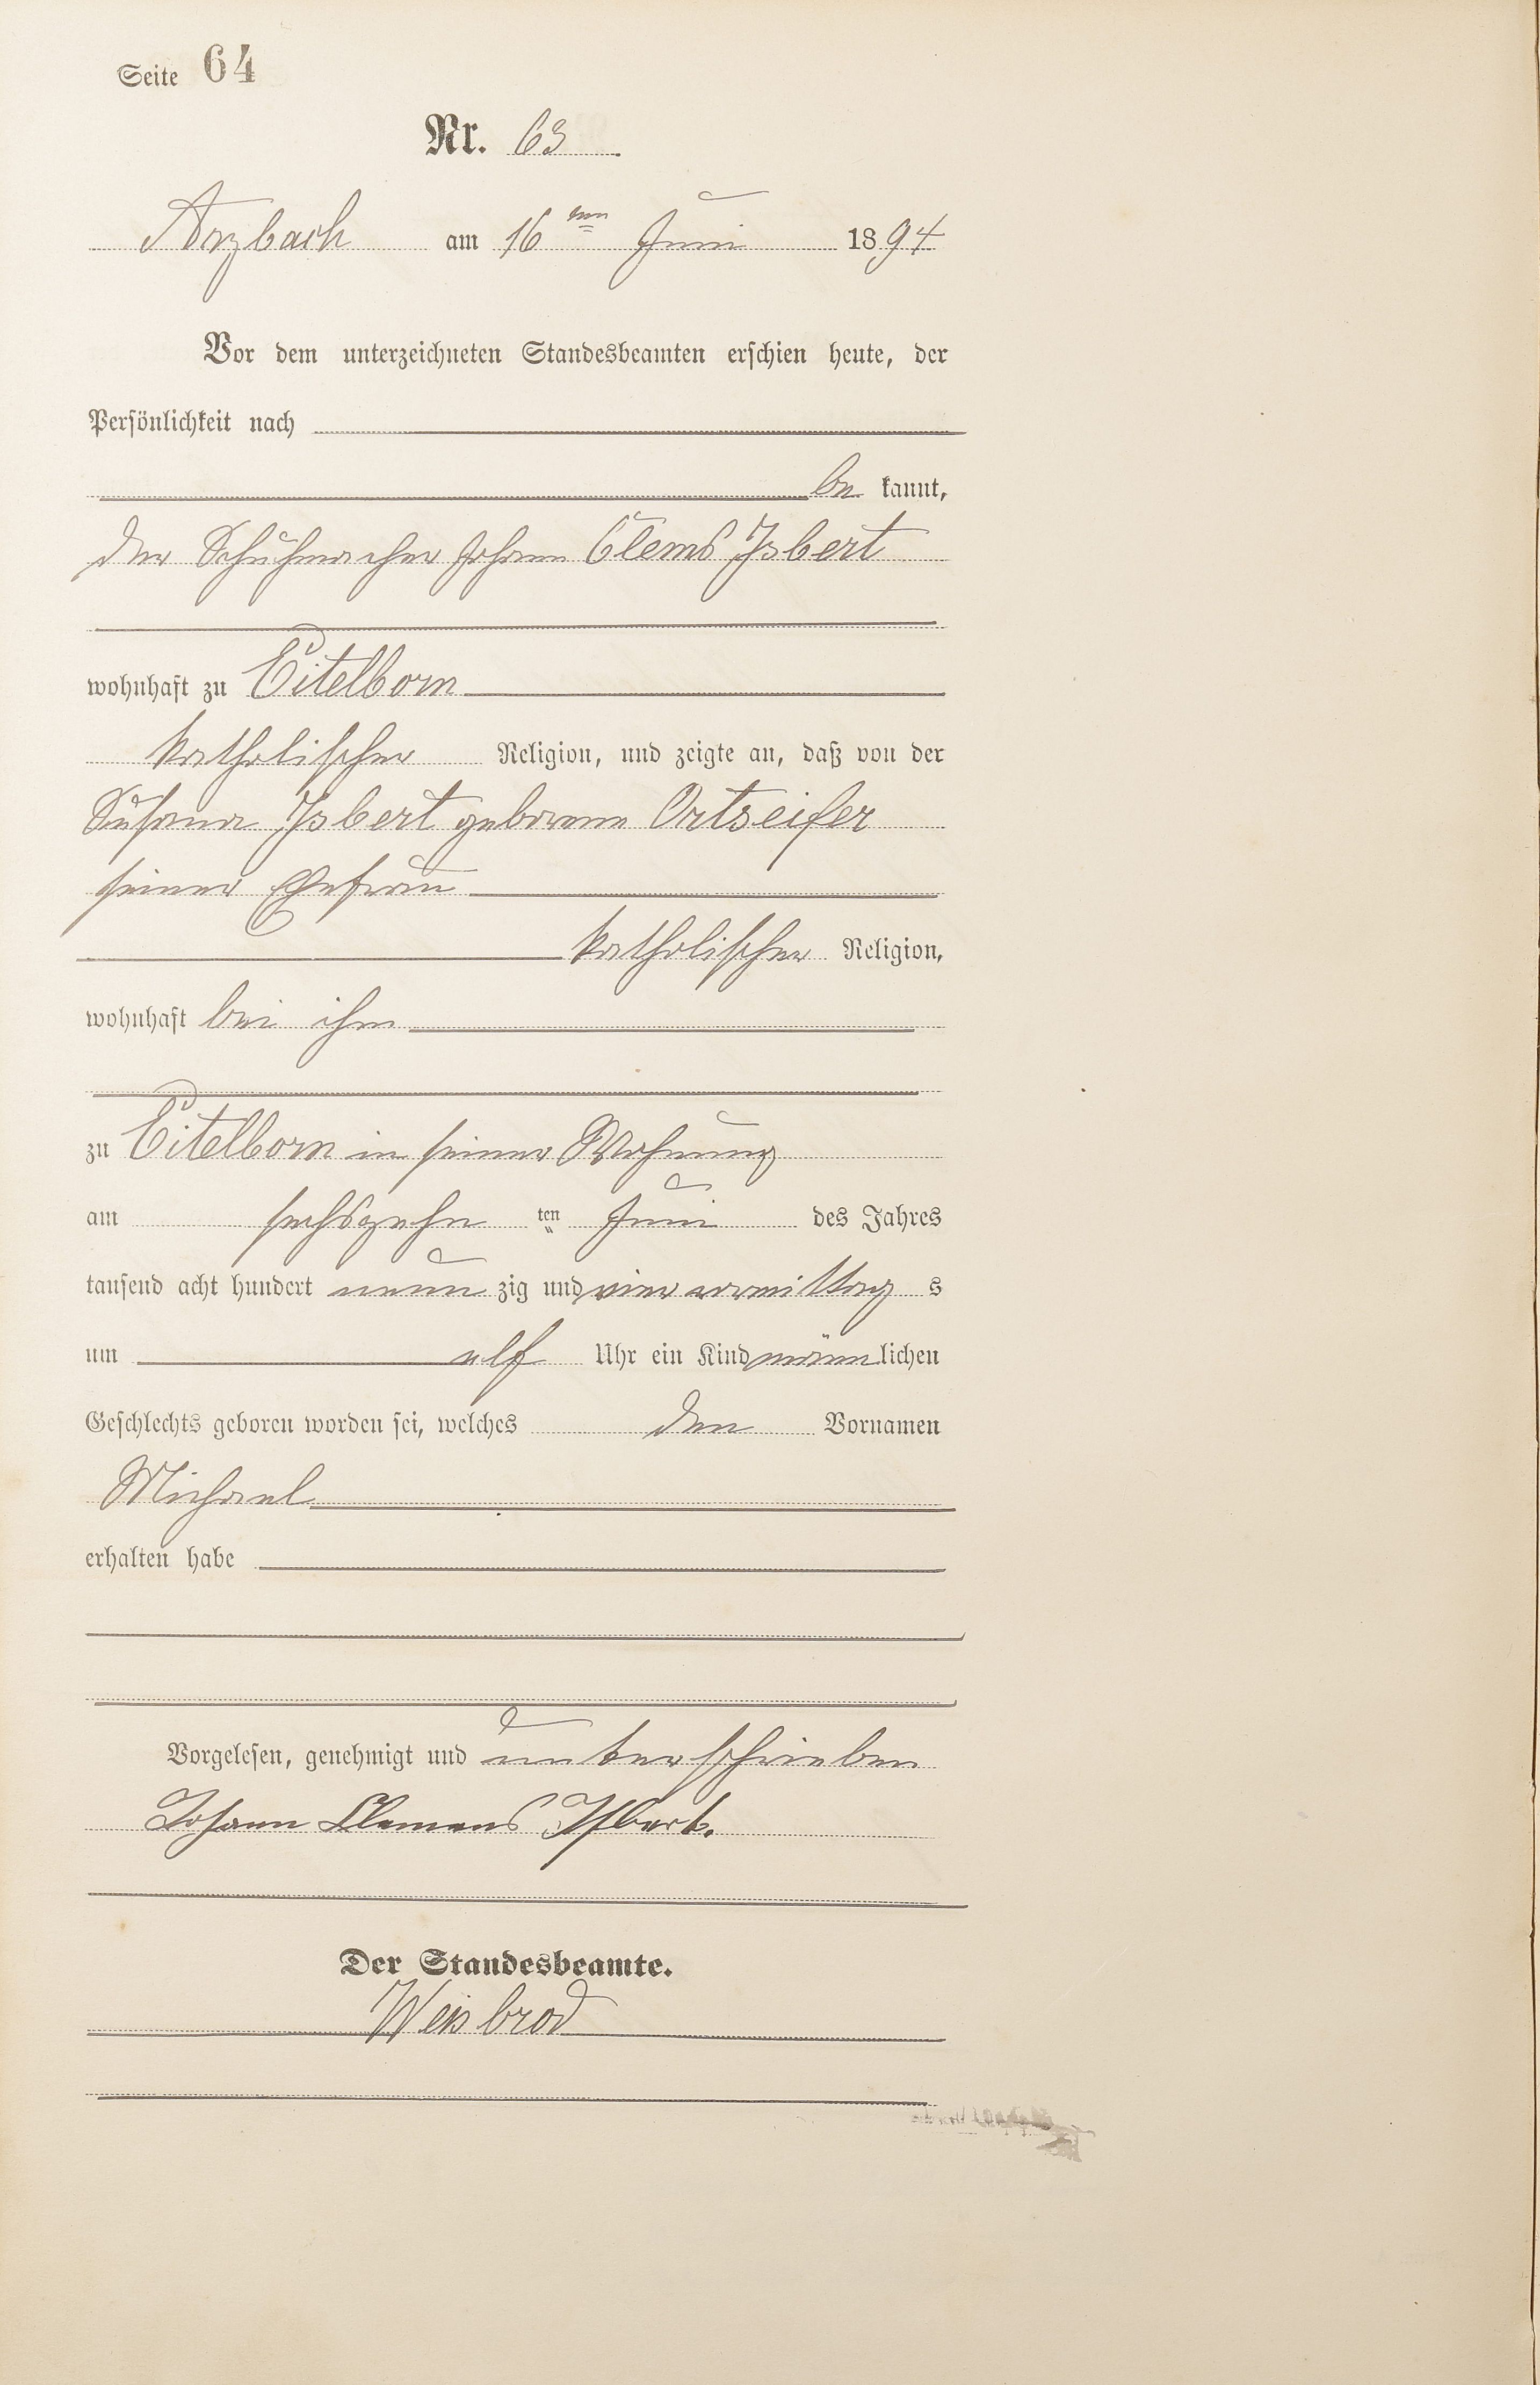 Seite 64
Nr. 63
Arzbach am 16ten Juni 1894
Vor dem unterzeichneten Standesbeamten erschien heute, der
Persönlichkeit nach
be kannt,
der Schuhmacher Johann Clems Isbert
wohnhaft zu Eitelborn
katholischer Religion, und zeigte an, daß von der
Susana Isbert geborene Ortseifer
seiner Ehefrau
katholischer Religion,
wohnhaft bei ihm
zu Eitelborn in seiner Wohnung
am sechszehn ten Juni des Jahres
tausend acht hundert neun zig und vier vormittag s
um elf Uhr ein Kind männlichen
Geschlechts geboren worden sei, welches den Vornamen
Michael
erhalten habe
Vorgelesen, genehmigt und unterschrieben
Johann Clemens Isbert.
Der Standesbeamte.
Weisbrod